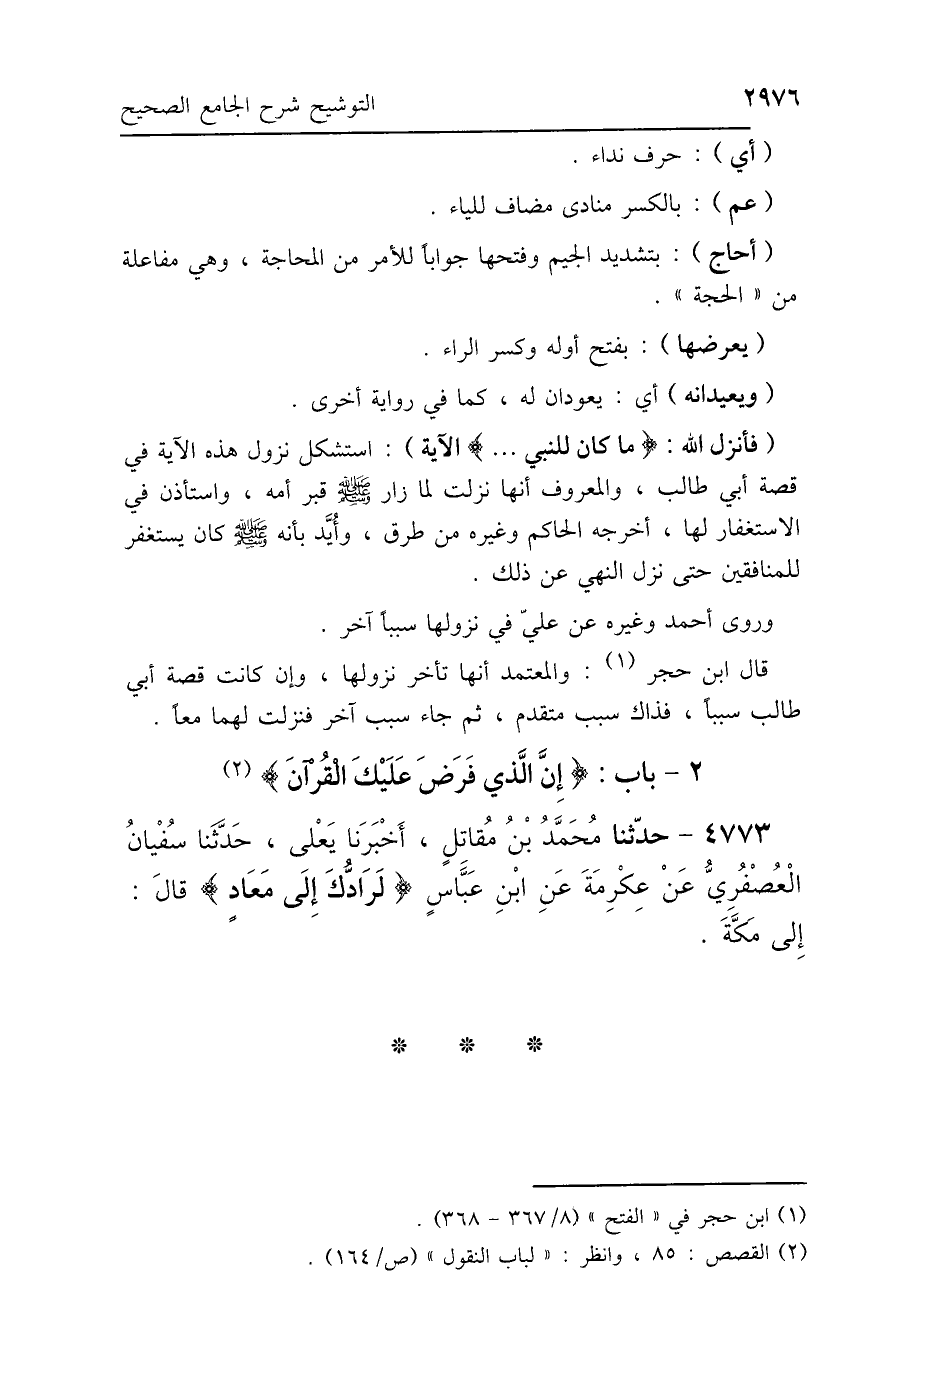 ٢٩٧٦ التوشيح شرح الجامع الصحيح
( أي ) : حرف نداء .
( عم ) : بالكسر منادى مضاف للياء .
( أحاج ) : بتشديد الجيم وفتحها جواباً للأمر من المحاجة ، وهي مفاعلة
من « الحجة » .
( يعرضها ) : بفتح أوله وكسر الراء .
( ويعيدانه ) أي : يعودان له ، كما في رواية أخرى .
( فأنزل الله : ﴿ ما كان للنبي ... ﴾ الآية ) : استشكل نزول هذه الآية في
قصة أبي طالب ، والمعروف أنها نزلت لما زار ﷺ قبر أمه ، واستأذن في
الاستغفار لها ، أخرجه الحاكم وغيره من طرق ، وأُيَّد بأنه ﷺ كان يستغفر
للمنافقين حتى نزل النهي عن ذلك .
وروى أحمد وغيره عن عليّ في نزولها سبباً آخر .
قال ابن حجر (١) : والمعتمد أنها تأخر نزولها ، وإن كانت قصة أبي
طالب سبباً ، فذاك سبب متقدم ، ثم جاء سبب آخر فنزلت لهما معاً .
٢ - باب : ﴿ إِنَّ الَّذي فَرَضَ عَلَيْكَ الْقُرْآنَ ﴾ (٢)
٤٧٧٣ - حدّثنا مُحَمَّدُ بْنُ مُقاتِلٍ ، أَخْبَرَنا يَعْلى ، حَدَّثَنا سُفْيانُ
الْعُصْفُرِيُّ عَنْ عِكْرِمَةَ عَنِ ابْنِ عَبَّاسٍ ﴿ لَرَادُّكَ إِلَى مَعَادٍ ﴾ قالَ :
إِلى مَكَّةَ .
* * *
(١) ابن حجر في « الفتح » (٨/ ٣٦٧ - ٣٦٨) .
(٢) القصص : ٨٥ ، وانظر : « لباب النقول » (ص/ ١٦٤) .